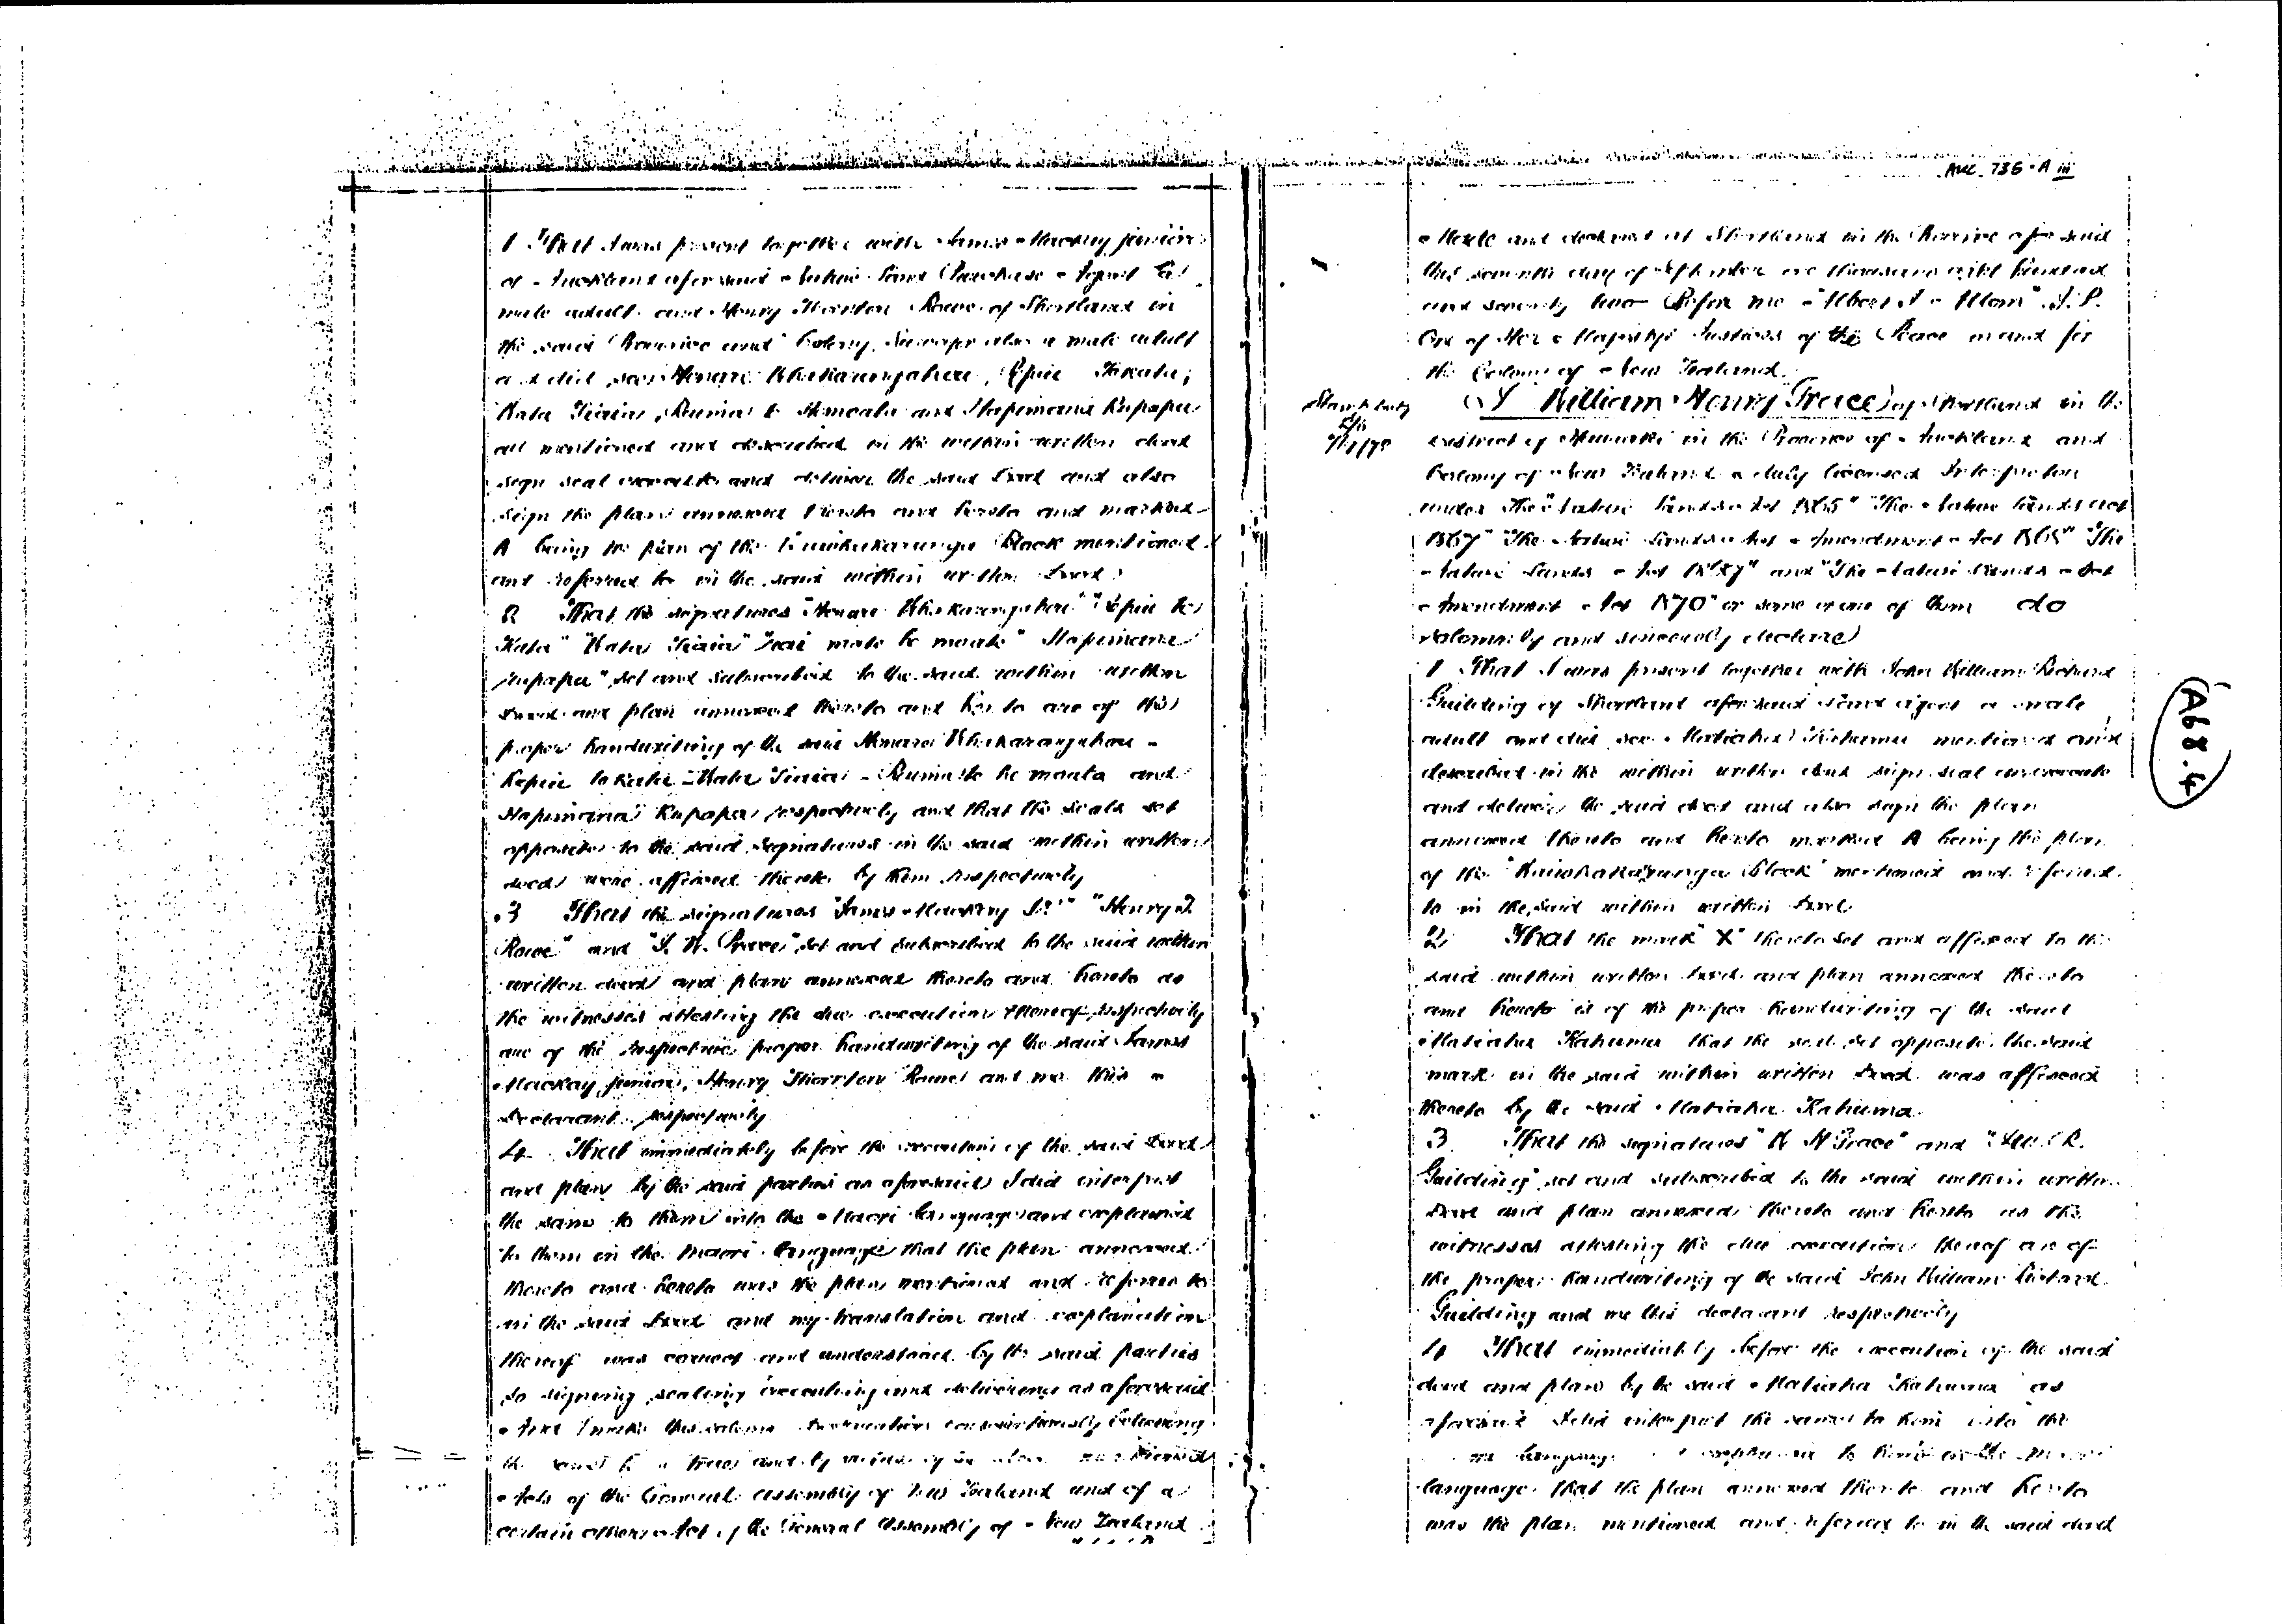 1 That I was present together with James Mackay junior
of Auckland aforesaid Native Land Purchase Agent a
male adult and Henry Thornton Rowe of Shortland in
the said Province and Colony, also a male adult
and did see
Hata and Hapimana Kupapa
all mentioned and described in the within written deed
sign seal execute and deliver the said Deed and also
sign the plan annexed thereto and hereto and marked
A being the plan of the Block mentioned
and referred to in the said within written Deed
2 That the signatures
Hapimana
Kupapa" set and subscribed to the said within written
Deed and plan annexed thereto and hereto are of the
proper handwriting of the said
and
Hapimana Kupapa respectively and that the seals set
opposite to the said signatures in the said within written
deed were affixed thereto by them respectively
3 That the signatures "James Mackay Jr" "Henry T.
Rowe" and Grace" set and subscribed to the said within
written deed and plan annexed thereto and hereto as
the witnesses attesting the due execution thereof respectively
are of the respective proper handwriting of the said James
Mackay junior, Henry Thornton Rowe and me this
Declarant respectively
4 That immediately before the execution of the said Deed
and plan by the said parties as aforesaid I did interpret
the same to them into the Maori language and explained
to them in the Maori language that the plan annexed
thereto and hereto was the plan mentioned and referred to
in the said Deed and my translation and explanation
thereof was correct and understood by the said parties
so signing sealing executing and delivering as aforesaid
And I make this solemn declaration conscientiously believing
the same to be true and by virtue of the above mentioned
Acts of the General Assembly of New Zealand and of a
certain other Act of the General Assembly of New Zealand
AUC. 736 - A iii
Made and declared at Shortland in the Province aforesaid
this seventh day of September one thousand eight hundred
and seventy two Before me "Albert J Allom" J.P.
One of Her Majestys Justices of the Peace in and for
the Colony of New Zealand.
Stamp Duty
I William Henry Grace of Shortland in the
district of Hauraki in the Province of Auckland and
Colony of New Zealand a duly licensed Interpreter
under The "Native Lands Act 1865" "The Native Lands Act
1867" "The Native Lands Act Amendment Act 1868" "The
Native Lands Act 18" and "The Native Lands Act
Amendment Act 1870" or some or one of them do
solemnly and sincerely declare
1 That I was present together with John William Richard
Guilding of Shortland aforesaid Land agent a male
adult and did see Matiaha Kahuma mentioned and
described in the within written deed sign seal execute
and deliver the said deed and also sign the plan
annexed thereto and hereto marked A being the plan
of the Block" mentioned and referred
to in the said within written Deed
2 That the mark "X" thereto set and affixed to the
said within written Deed and plan annexed thereto
and hereto is of the proper handwriting of the said
Matiaha Kahuma that the seal set opposite the said
mark in the said within written Deed was affixed
thereto by the said Matiaha Kahuma
3 That the signatures "W H Grace" and
Guilding" set and subscribed to the said within written
Deed and plan annexed thereto and hereto as the
witnesses attesting the due execution thereof are of
the proper handwriting of the said John William Richard
Guilding and me this declarant respectively
4 That immediately before the execution of the said
deed and plan by the said Matiaha Kahuma as
aforesaid I did interpret the same to him into the
language explained to him in the Maori
language that the plan annexed thereto and hereto
was the plan mentioned and referred to in the said deed
(A68.4)